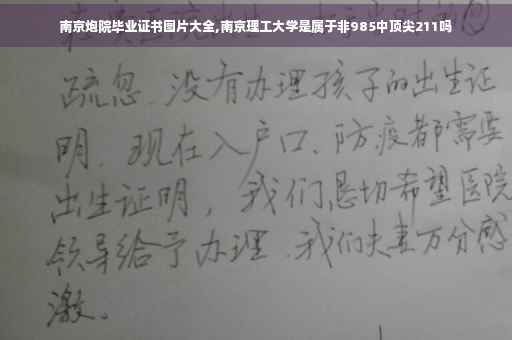 南京炮院毕业证书图片大全,南京理工大学是属于非985中顶尖211吗
疏忽、没有办理孩子的出生证
明、现在入户口、防疫都需要
出生证明，我们恳切希望医院
领导给予办理、我们夫妻万分感
激。